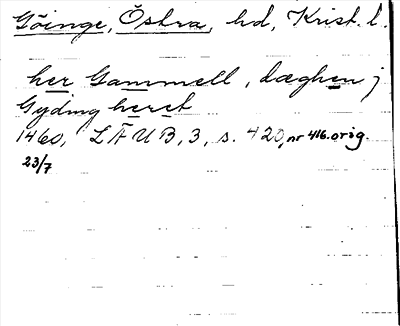 Göinge, Östra, hd, Krist. l.
her Gammell, dæghen j
Gyding heret
1460, LÄUB, 3, s. 420, nr 416. orig.
23/7